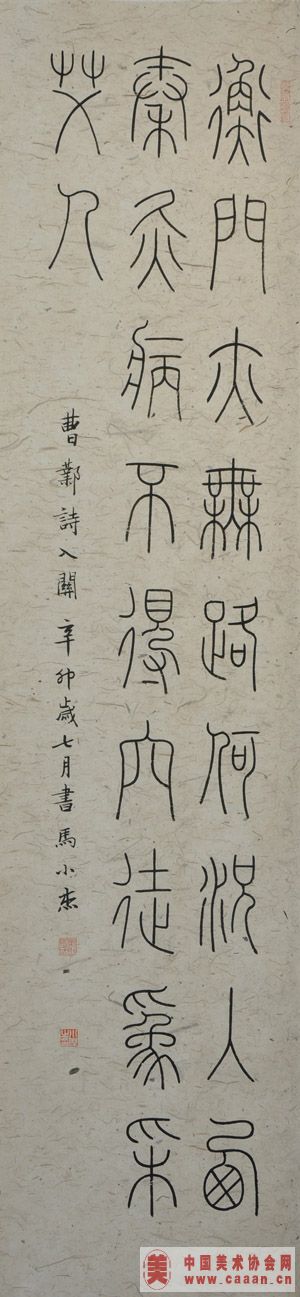 衡門亦無路何況入西
秦灸病不得穴徒為采
艾人
曹鄴詩入關 辛卯歲七月書馬小杰
美
中国美术协会网
www.caaan.cn